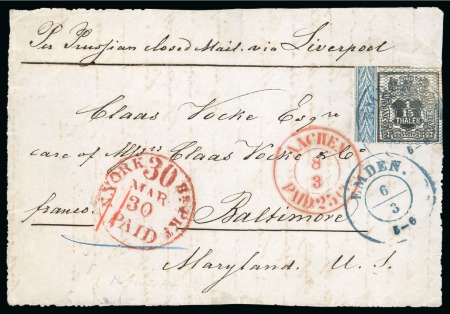 Per Prussian closed Mail. via Liverpool
Claas Vocke Esqre
care of Messrs Claas Vocke & Co
franco. Baltimore
Maryland. U. S.
1
15
THALER
AACHEN
8
3
PAID 25
EMDEN.
6
3
5-6
N.YORK 30 Br PKT
MAR
30
PAID